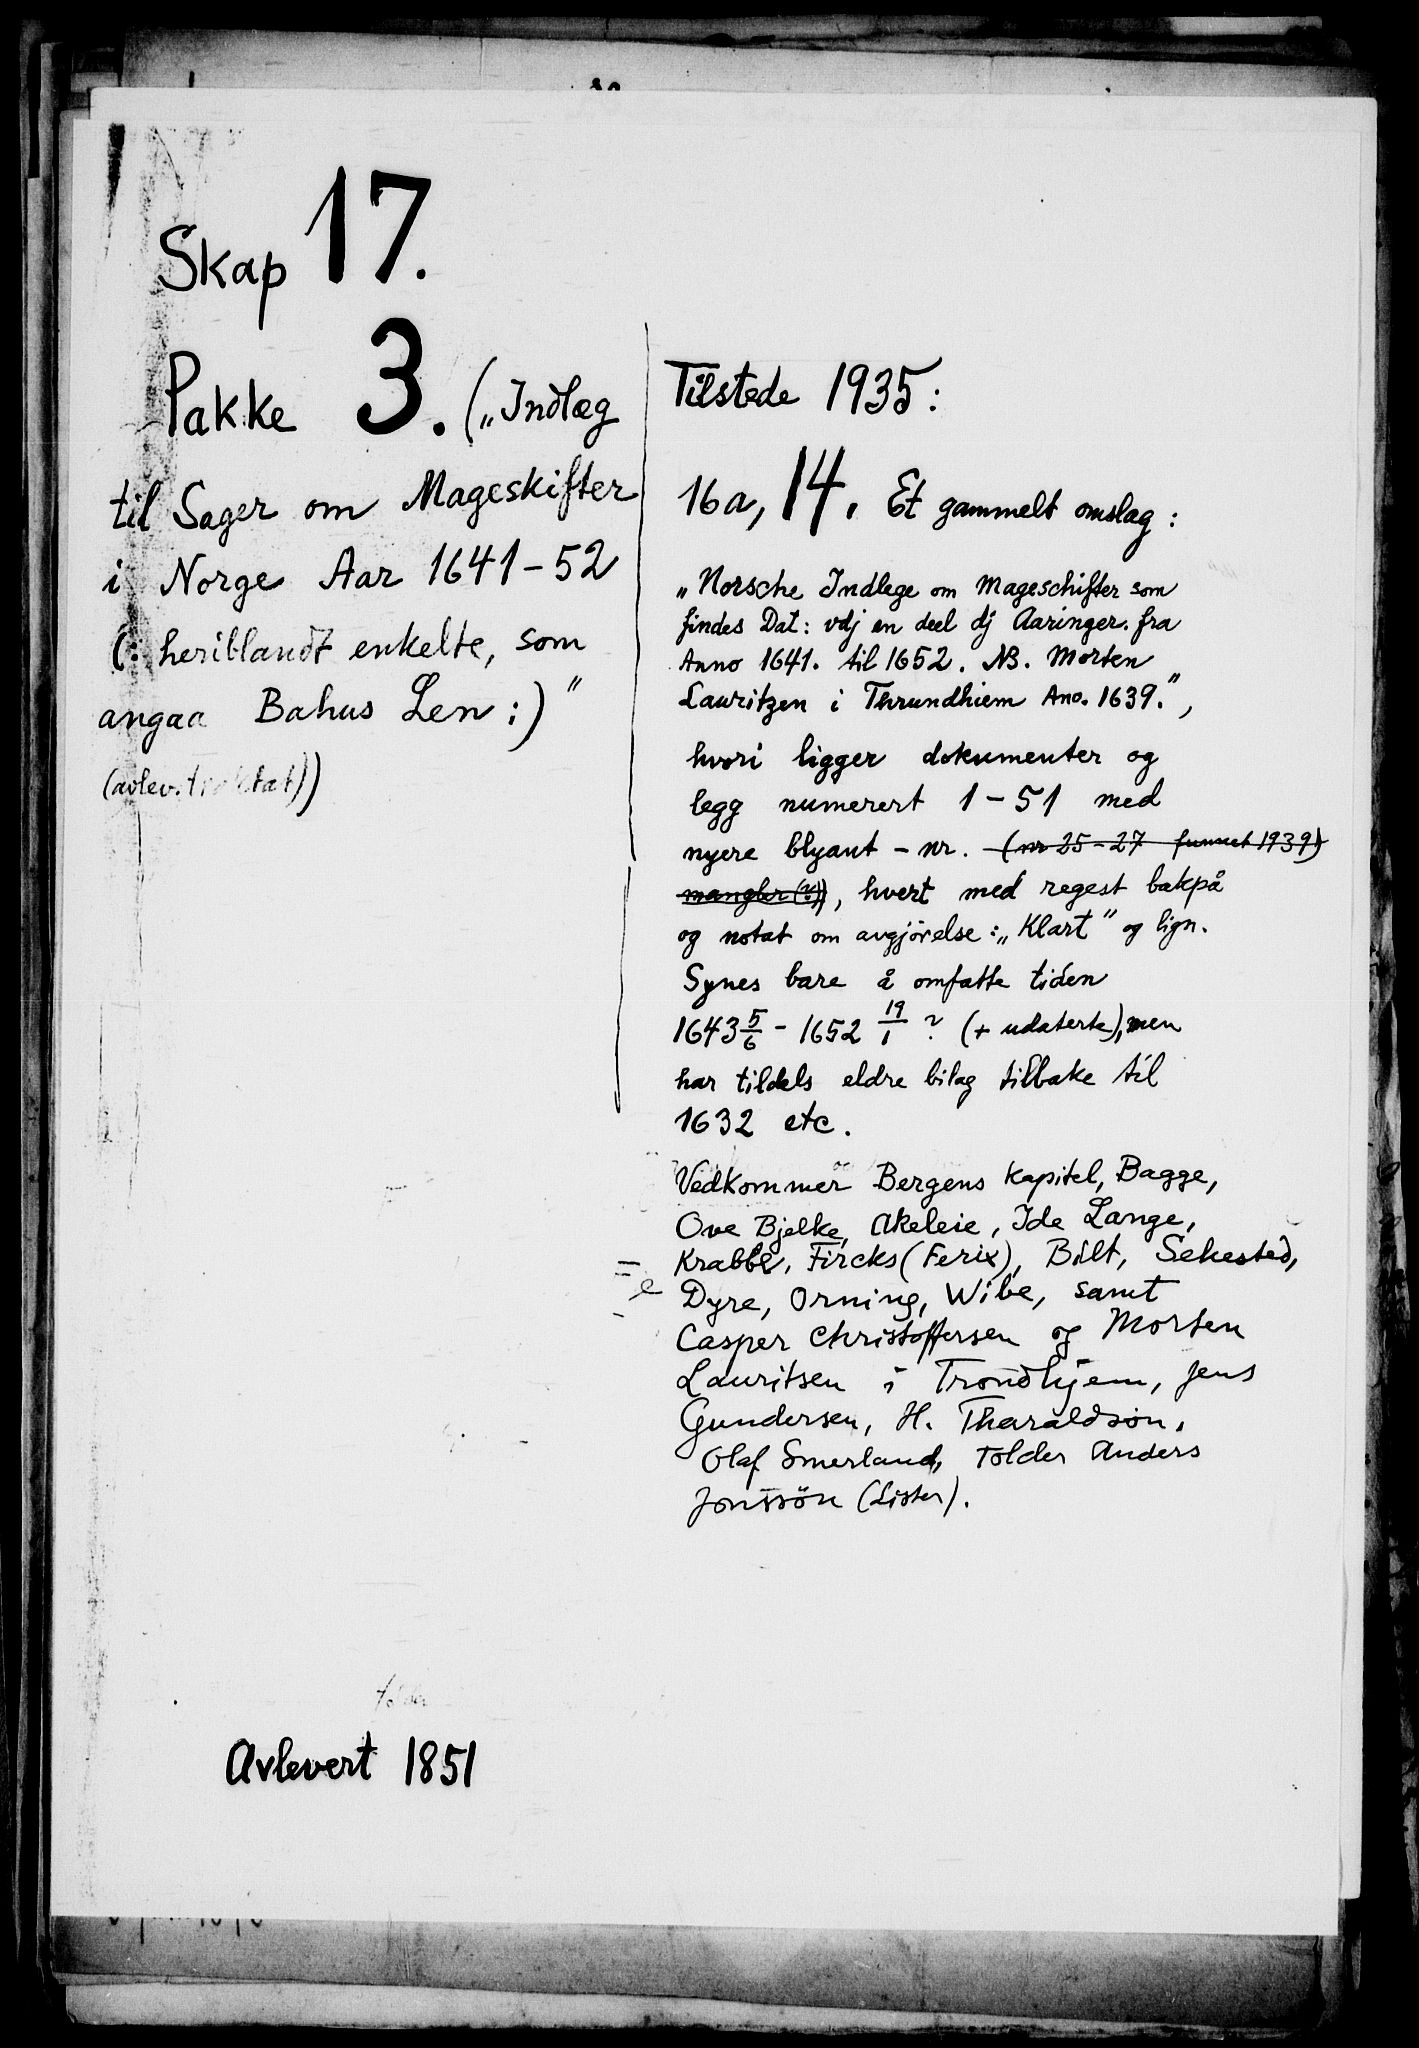 Skap 17.
Pakke 3. („Indlæg
til Sager om Mageskifter
i Norge Aar 1641-52
(: heriblandt enkelte, som
angaa Bahus Len :)"
Tilstede 1935:
16a, 14. Et gammelt omslag:
„Norsche Indlege om Mageschifter som
findes Dat: vdj en deel dj Aaringer. fra
Anno 1641. til 1652. NB. Morten
Lauritzen i Thrundhiem Ano. 1639.",
hvori ligger dokumenter og
legg numerert 1-51 med
nyere blyant-nr. (nr 25-27 funnet 1939)
mangler (?)), hvert med regest bakpå
og notat om avgjörelse: „Klart" og lign.
Synes bare å omfatte tiden
1643 5/6 - 1652 19/1 ? (+ udaterte), men
har tildels eldre bilag tilbake til
1632 etc.
Vedkommer Bergens kapitel, Bagge,
Ove Bjelke, Akeleie, Ide Lange,
Krabbe, Fircks (Ferix), Bilt, Sehested,
Dyre, Orning, Wibe, samt
Casper Christoffersen og Morten
Lauritsen i Trondhjem, Jens
Gundersen, H. Tharaldsön,
Olaf Smerland, Tolder Anders
Jonssön (Lister).
Avlevert 1851